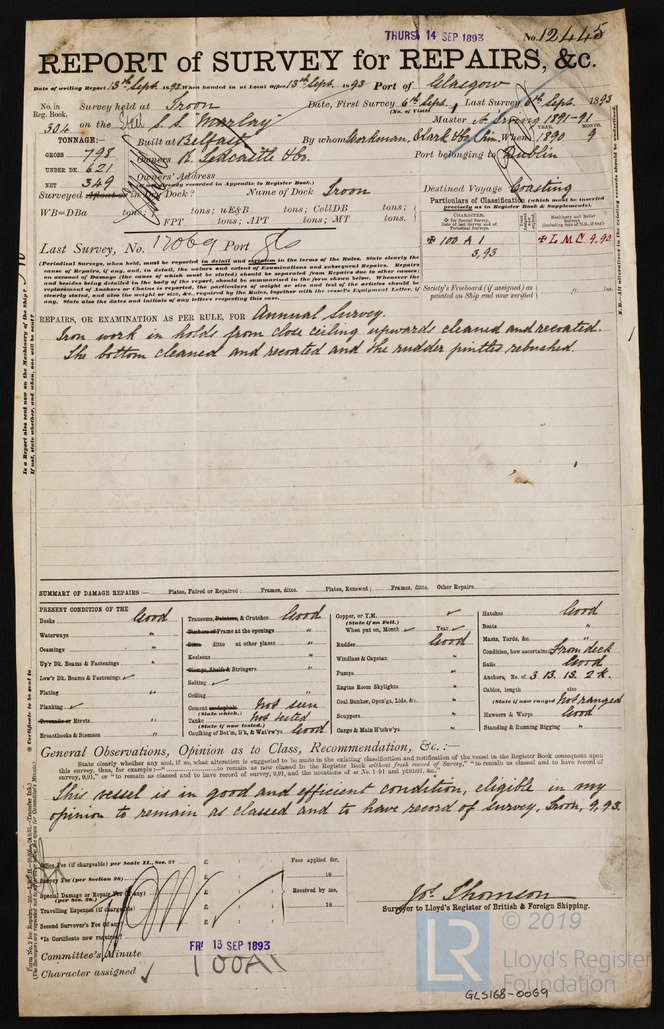 THURS 14 SEP 1893
No. 12445
REPORT of SURVEY for REPAIRS, &c.
Date of writing Report 13th Sept. 1893 When handed in at Local Office 13th Sept. 1893 Port of Glasgow
No. in Reg. Book. Survey held at Troon Date, First Survey 6th Sept. Last Survey 6th Sept. 1893
(No. of Visits)
304 on the S.S. "Marlay" Master 1891-91
TONNAGE:—
GROSS 798
UNDER DK. 621
NET 349
Built at Belfast By whom Workman, Clark & Co. Lim. When 1890 9
YEAR. MONTH.
Owners R. Tedcastle & Co. Port belonging to Dublin
Owners' Address
(if not already recorded in Appendix to Register Book.)
Surveyed afloat or in Dry Dock? Name of Dock Troon Destined Voyage Coasting
WB=DBa tons; uE&B tons; CellDB tons;
FPT tons; APT tons; MT tons.
Particulars of Classification (which must be inserted precisely as in Register Book & Supplements).
CHARACTER.
✠ 100 A 1
5,93
✠ L M C 9.90
Society's Freeboard (if assigned) as painted on Ship and now verified
ft. ins.
Last Survey, No. 12069 Port Gls
(Periodical Surveys, when held, must be reported in detail and seriatim in the terms of the Rules. State clearly the cause of Repairs, if any, and, in detail, the nature and extent of Examinations and subsequent Repairs. Repairs on account of Damage (the cause of which must be stated) to be separated from Repairs due to other causes; and besides being detailed in the body of the report, should be summarised in the form shown below. Whenever the replacement of Anchors or Chains is reported, the particulars of weight or size and test of the articles should be clearly stated, and also the weight or size, &c., required by the Rules, together with the vessel's Equipment Letter, if any. State also the dates and initials of any letters respecting this case.
REPAIRS, OR EXAMINATION AS PER RULE, FOR Annual Survey.
Iron work in holds from close ceiling upwards cleaned and recoated.
The bottom cleaned and recoated and the rudder pintles rebushed.
SUMMARY OF DAMAGE REPAIRS:— Plates, Faired or Repaired; Frames, ditto. Plates, Renewed; Frames, ditto. Other Repairs
PRESENT CONDITION OF THE
Decks Good
Waterways "
Coamings "
Up'r Dk. Beams & Fastenings "
Low'r Dk. Beams & Fastenings ✓
Plating "
Planking ✓
Treenails or Rivets "
Breasthooks & Stemson "
Transoms, Pointers, & Crutches Good
Timbers or Frame at the openings "
Ditto ditto at other places "
Keelsons "
Clamps, Shelfs & Stringers "
Salting ✓
Ceiling "
Cement or Asphalt Not seen
(State which.)
Tanks Not tested
(State if now tested.)
Caulking of Bot'm, D'k, & Wat'rw'ys Good
Copper, or Y.M. ✓
(State if on Felt.)
When put on, Month ✓ Year ✓
Rudder Good
Windlass & Capstan "
Pumps "
Engine Room Skylights "
Coal Bunker, Open'gs, Lids, &c. "
Scuppers "
Cargo & Main H'tchw'ys "
Hatches Good
Boats "
Masts, Yards, &c. "
Condition, how ascertained From deck
Sails Good
Anchors, No. of 3 B. 1 S. 2 K.
Cables, length size
(State if now ranged) Not ranged
Hawsers & Warps Good
Standing & Running Rigging "
General Observations, Opinion as to Class, Recommendation, &c.:—
State clearly whether any, and if so, what alteration is suggested to be made in the existing classification and notification of the vessel in the Register Book consequent upon this survey
This vessel is in good and efficient condition, eligible in my
opinion to remain as classed and to have record of survey, Troon, 9,93.
Office Fee (if chargeable) per Scale II., Sec. 27 £ : :
Survey Fee (per Section 28) £ : :
Special Damage or Repair Fee (if any) (per Sec. 28.) £ : :
Travelling Expenses (if chargeable) £ : :
Second Surveyor's Fee (if any) £ : :
*Is Certificate now required?
Fees applied for,
18
Received by me,
18
Jos. Thomson
Surveyor to Lloyd's Register of British & Foreign Shipping.
Committee's Minute FRI 15 SEP 1893
Character assigned 100A1
© 2019
LR
Lloyd's Register
Foundation
GLS168-0069